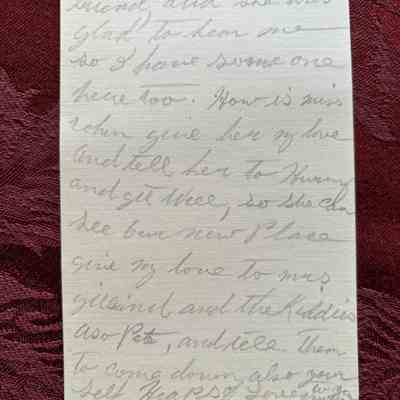 friend and she was
glad to hear me
so I have some one
here too. How is miss
give her my love
and tell her to Hurry
and git well, so she can
see our new Place
give my love to mrs
and the Kiddies
also Pete, and tell them
to come down, also your
self Heaps of Loves